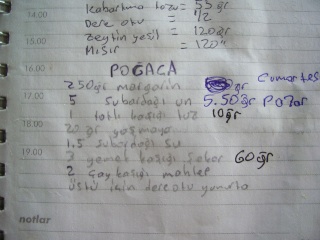 14.00 Kabartma tozu = 55 gr
Dere otu = 1/2
15.00 Zeytin yeşil = 120 gr
Mısır = 120"
16.00 POĞACA
250 gr margarin gr Cumartesi
17.00 5 subardağı un 5.50 gr Pazar
1 tatlı kaşığı tuz 10 gr
18.00 20 gr yaşmaya
1.5 subardağı su
19.00 3 yemek kaşığı şeker 60 gr
2 çay kaşığı mahlep
üstü için dere otu yumurta
notlar